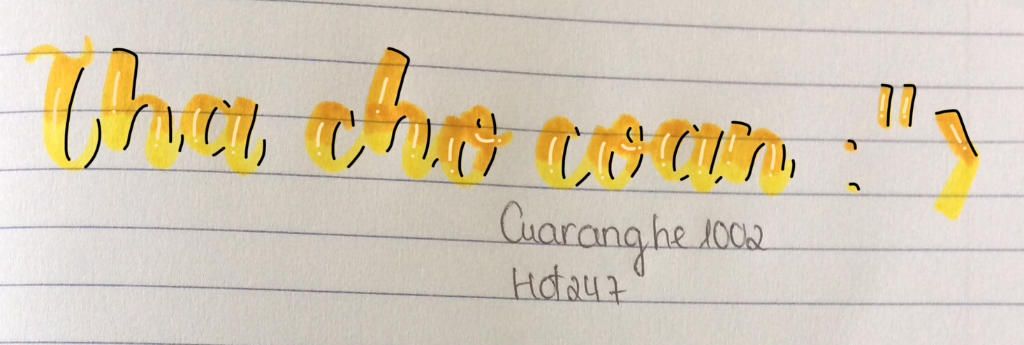 Tha cho coan :">
Cuaranghe1002
Hot247